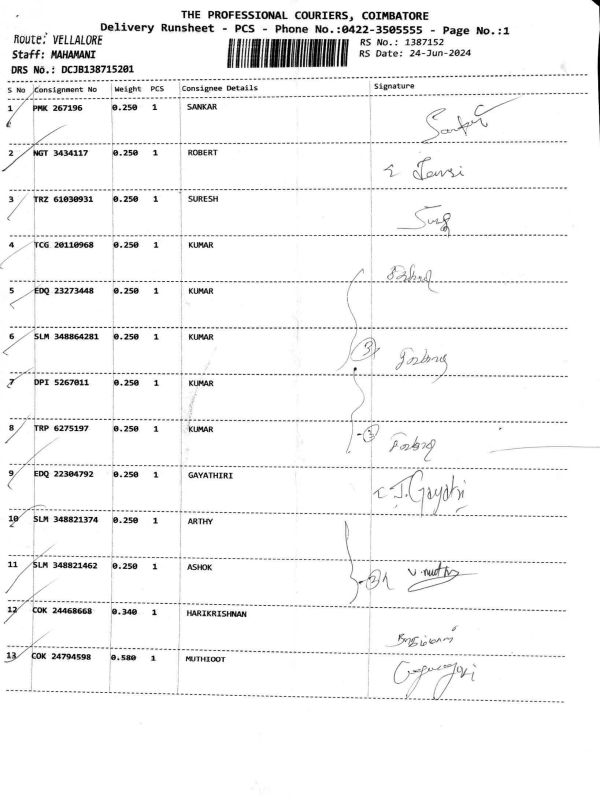 THE PROFESSIONAL COURIERS, COIMBATORE
Delivery Runsheet - PCS - Phone No.:0422-3505555 - Page No.:1
Route: VELLALORE
RS No.: 1387152
Staff: MAHAMANI
RS Date: 24-Jun-2024
DRS No.: DCJB138715201
S No Consignment No Weight PCS Consignee Details Signature
1 PMK 267196 0.250 1 SANKAR
2 NGT 3434117 0.250 1 ROBERT
3 TRZ 61030931 0.250 1 SURESH
4 TCG 20110968 0.250 1 KUMAR
5 EDQ 23273448 0.250 1 KUMAR
6 SLM 348864281 0.250 1 KUMAR
3
7 DPI 5267011 0.250 1 KUMAR
8 TRP 6275197 0.250 1 KUMAR
3
9 EDQ 22304792 0.250 1 GAYATHIRI
J. Gayatri
10 SLM 348821374 0.250 1 ARTHY
11 SLM 348821462 0.250 1 ASHOK
2
12 COK 24468668 0.340 1 HARIKRISHNAN
13 COK 24794598 0.580 1 MUTHIOOT